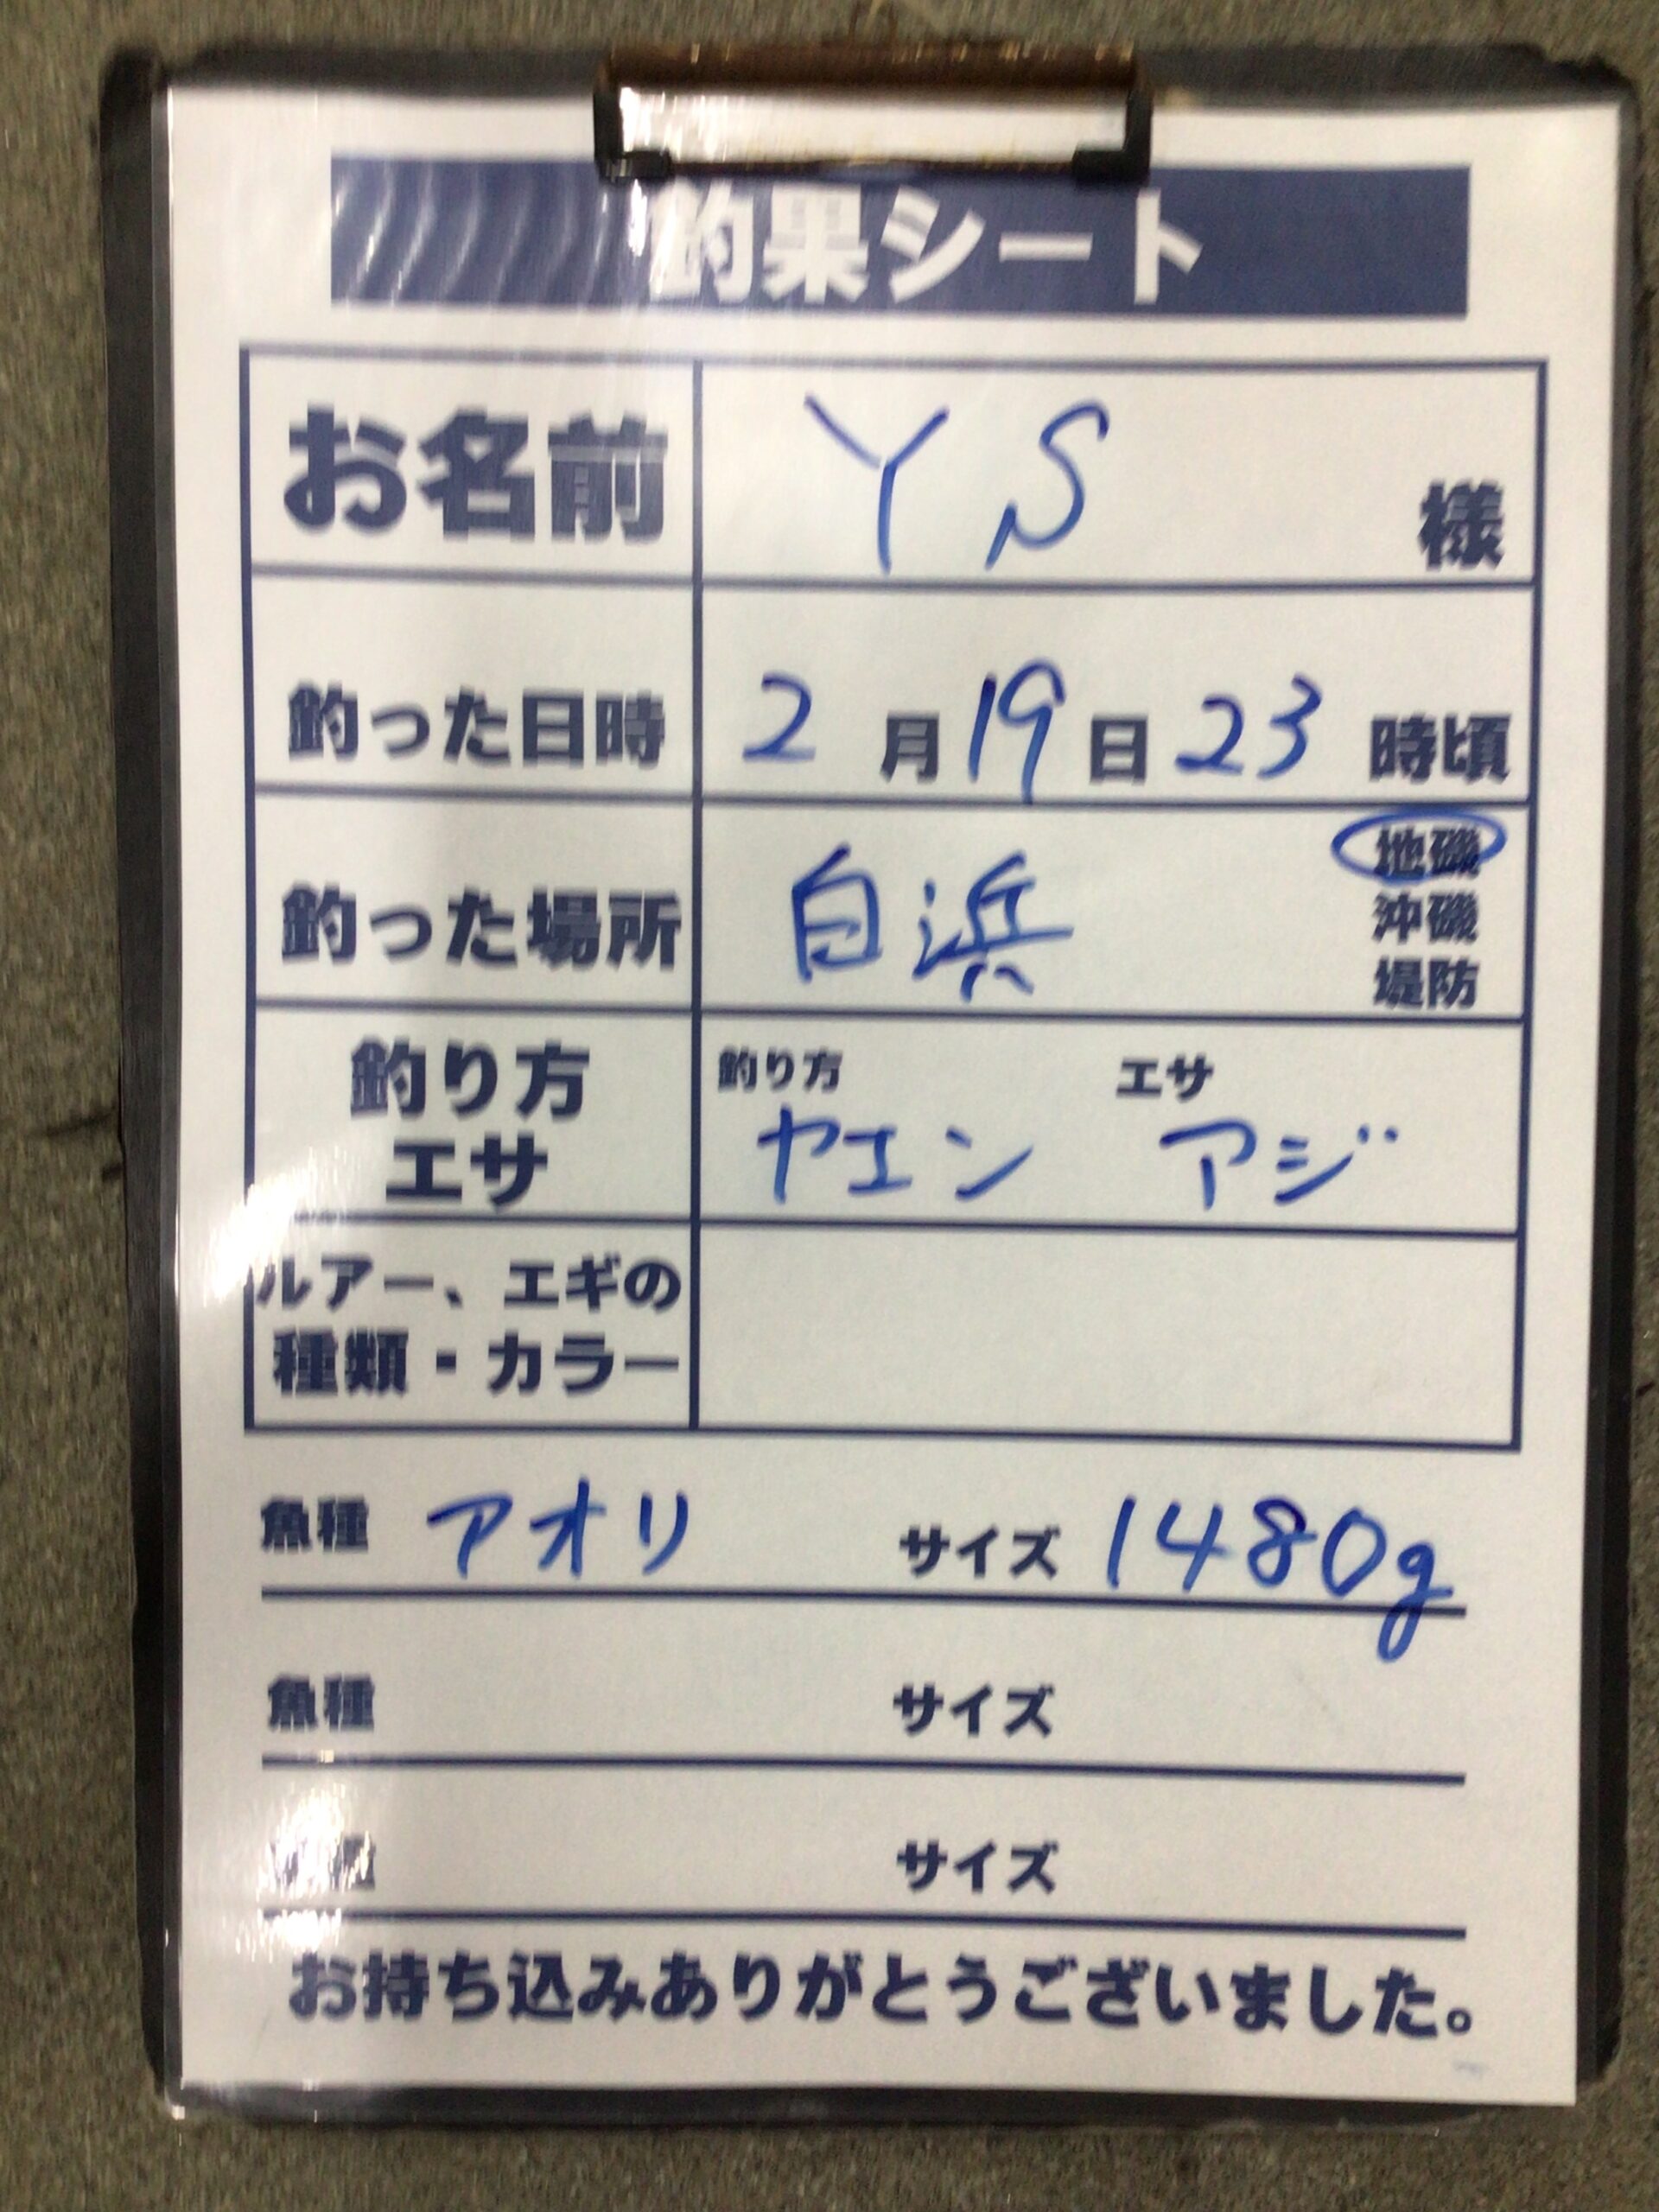 釣果シート
お名前 YS 様
釣った日時 2月19日23時頃
釣った場所 白浜 地磯
沖磯
堤防
釣り方 釣り方 エサ
エサ ヤエン アジ
ルアー、エギの
種類・カラー
魚種 アオリ サイズ 1480g
魚種 サイズ
サイズ
お持ち込みありがとうございました。